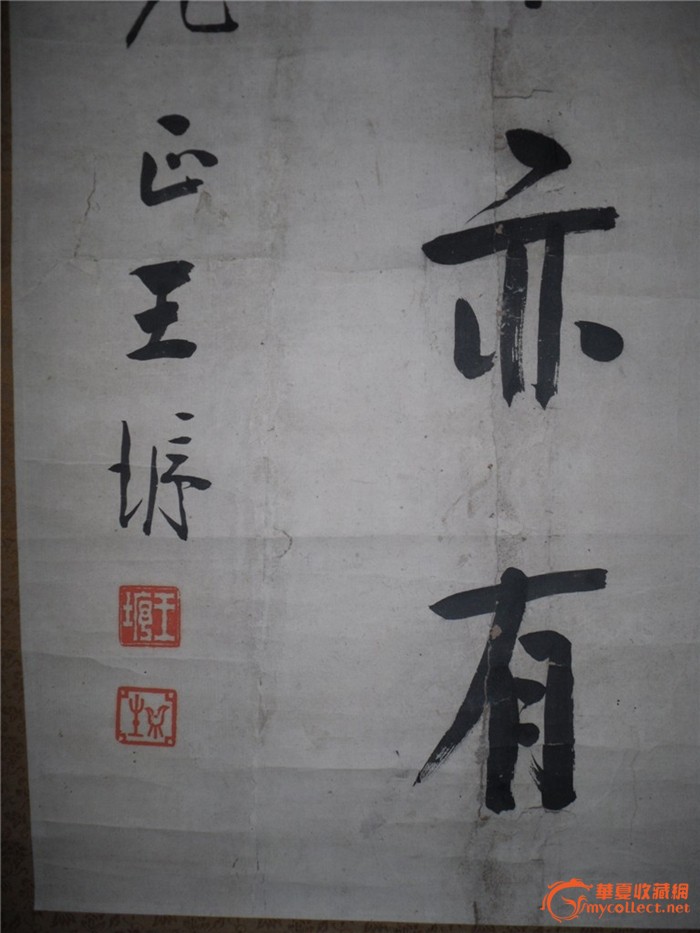 亦有
正王垿
王垿
華夏收藏網
mycollect.net